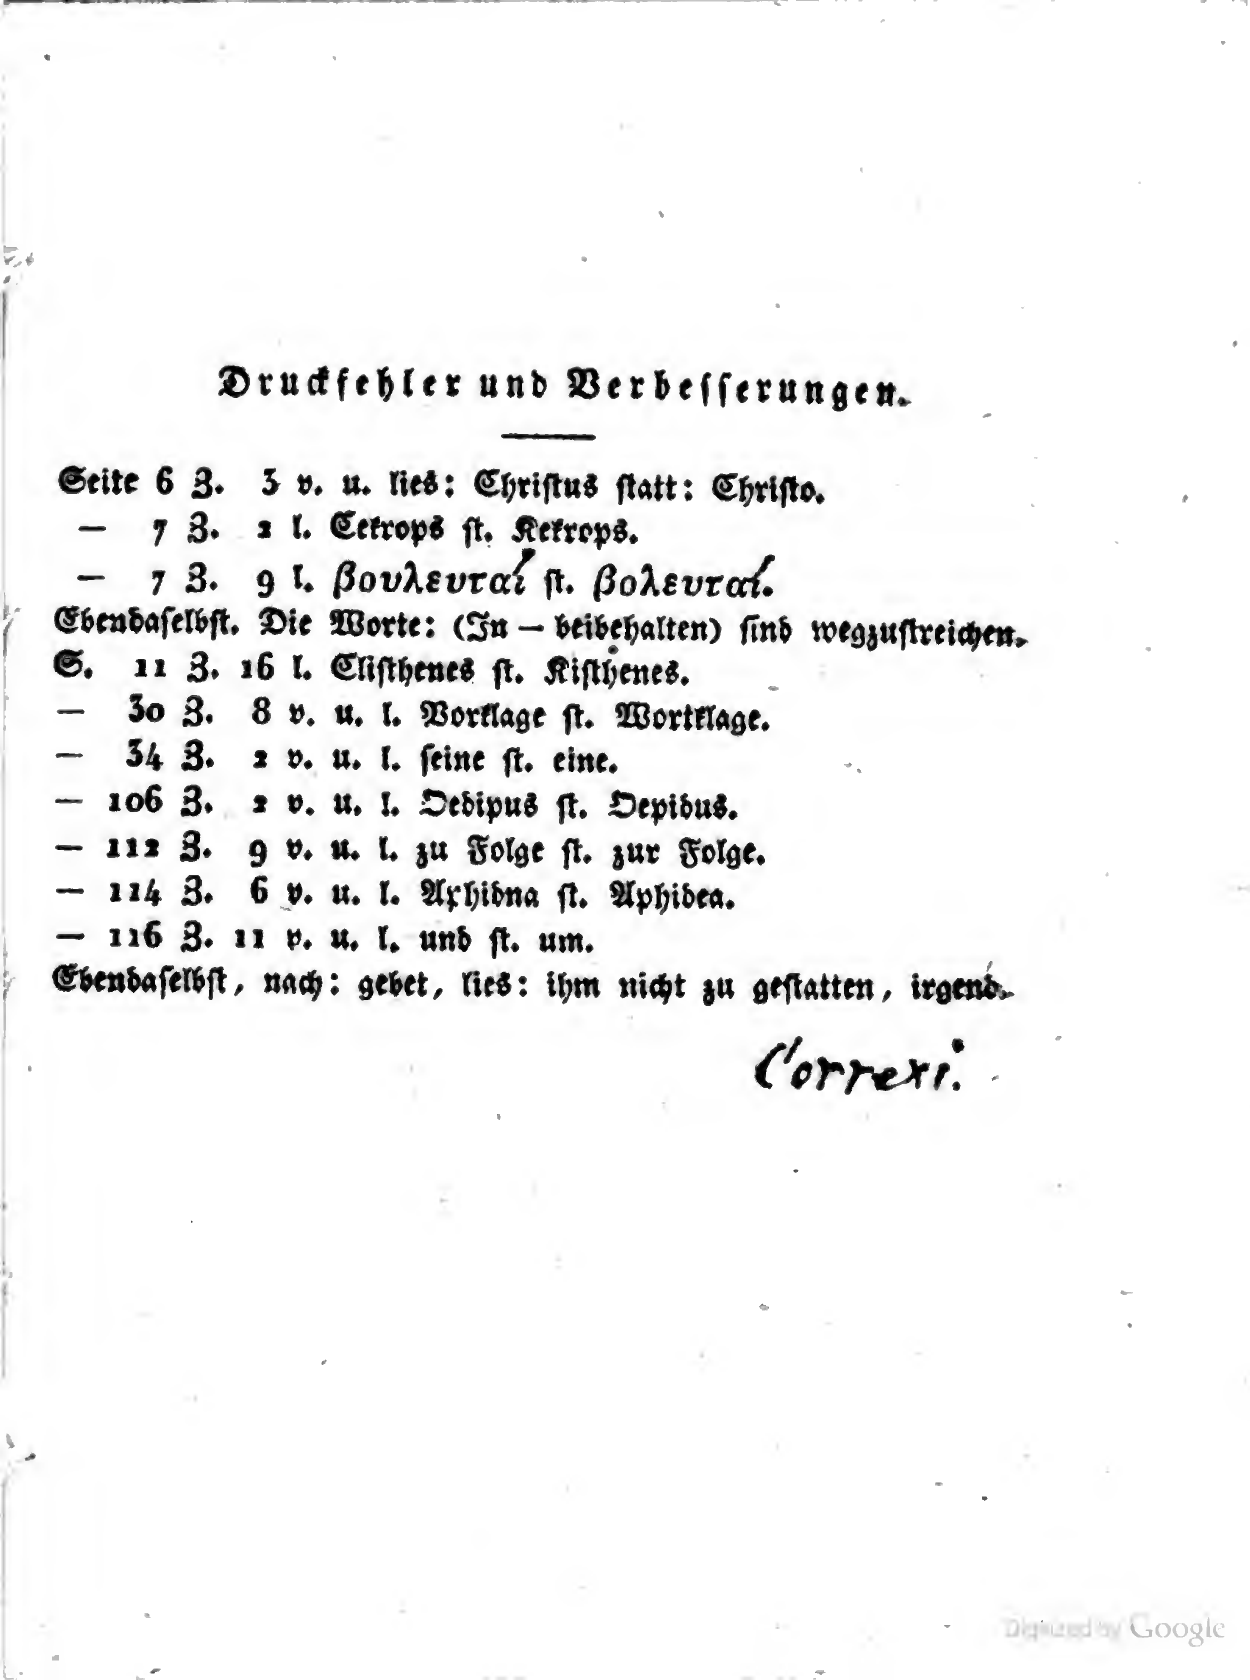 Druckfehler und Verbesserungen.
Seite 6 Z. 3 v. u. lies: Christus statt: Christo.
— 7 Z. 2 l. Cekrops st. Kekrops.
— 7 Z. 9 l. βουλευταί st. βολευταί.
Ebendaselbst. Die Worte: (In — beibehalten) sind wegzustreichen.
S. 11 Z. 16 l. Clisthenes st. Kisthenes.
— 30 Z. 8 v. u. l. Vorklage st. Wortklage.
— 34 Z. 2 v. u. l. seine st. eine.
— 106 Z. 2 v. u. l. Oedipus st. Oepidus.
— 112 Z. 9 v. u. l. zu Folge st. zur Folge.
— 114 Z. 6 v. u. l. Aphidna st. Aphidea.
— 116 Z. 11 v. u. l. und st. um.
Ebendaselbst, nach: gebet, lies: ihm nicht zu gestatten, irgend.
Correxi.
Digitized by Google